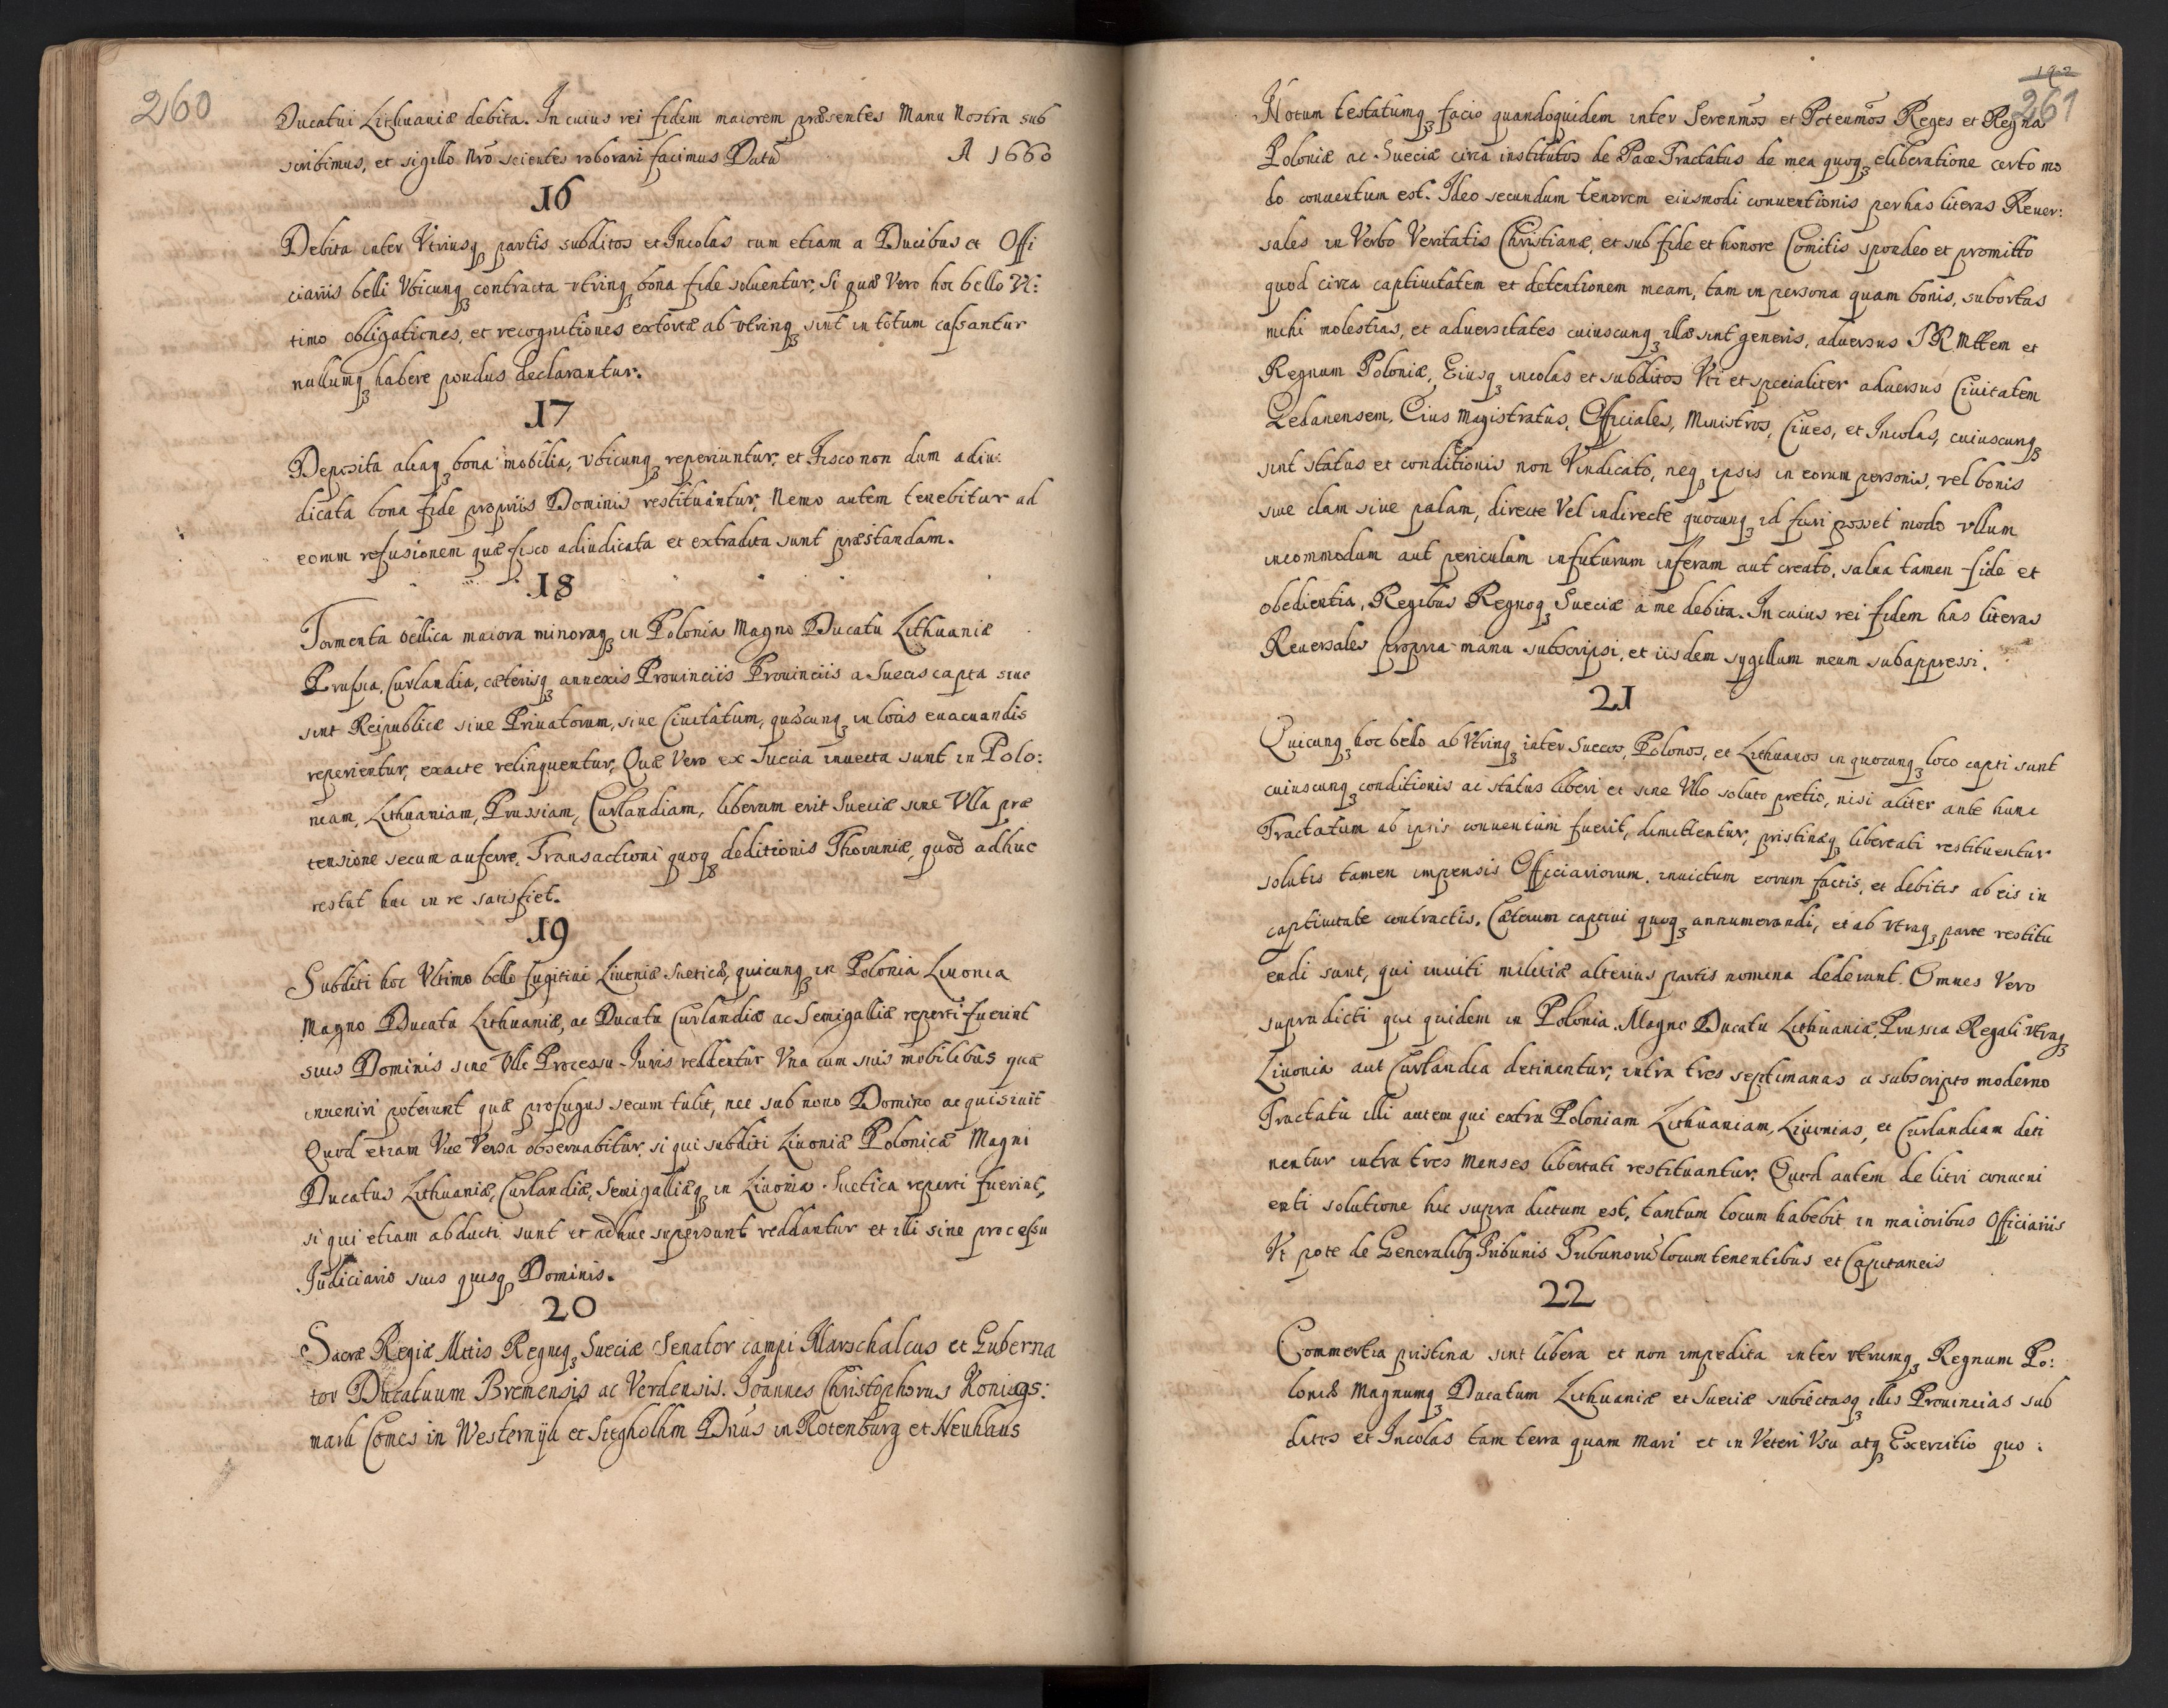 260
Ducatui Lithuaniæ debita. In cuius rei fidem maiorem præsentes Manu Nostra sub
scribimus, et sigillo Nrõ scientes roborari facimus Datũ A 1660
16
Debita inter Vtriusqꝫ partis subditos et Incolas tum etiam a Ducibus et Offi
ciariis belli Vbicunqꝫ contracta vtrinqꝫ bona fide soluentur, Si quæ Vero hoc bello Vl:
timo obligationes, et recognitiones extortæ ab vtrinqꝫ sint in totum cassantur
nullumqꝫ habere pondus declarantur.
17
Deposita aliaqꝫ bona mobilia, vbicunqꝫ reperiuntur, et Fisco non dum adiu:
dicata bona fide propriis Dominis restituantur, Nemo autem tenebitur ad
eorum refusionem quæ fisco adiudicata et extradita sunt præstandam.
18
Tormenta bellica maiora minoraqꝫ in Polonia Magno Ducatu Lithuaniæ
Prussia, Curlandia, cæterisqꝫ annexis Prouinciis Prouinciis a Suecis capta siue
sint Reipublicæ siue Priuatorum, siue Ciuitatum, quæcunqꝫ in locis euacuandis
reperientur, exacte relinquentur, Quæ Vero ex Suecia inuecta sunt in Polo:
niam, Lithuaniam, Prussiam, Curlandiam, liberum erit Sueciæ sine Vlla præ
tensione secum auferre, Transactioni quoqꝫ deditionis Thoruniæ, quod adhuc
restat hac in re satisfiet.
19
Subditi hoc Vltimo bello fugitiui Liuoniæ Sueticæ, quicunqꝫ in Polonia Liuonia
Magno Ducatu Lithuaniæ, ac Ducatu Curlandiæ ac Semigalliæ reperti fuerint
suis Dominis sine Vllo Processu Iuris reddentur Vna cum suis mobilibus quæ
inueniri poterunt quæ profugus secum tulit, nec sub nouo Domino acquisiuit
Quod etiam Vice Versa obseruabitur, si qui subditi Liuoniæ Polonicæ Magni
Ducatus Lithuaniæ, Curlandiæ, Semigalliæqꝫ in Liuonia Suetica reperti fuerint,
si qui etiam abducti sunt et adhuc supersunt reddantur et illi sine processu
Iudiciario suis quisqꝫ Dominis.
20
Sacræ Regiæ Mttis Regniqꝫ Sueciæ Senator campi Marschalcus et Guberna
tor Ducatuum Bremensis ac Verdensis. Ioannes Christophorus Konings:
mark Comes in Westernijk et Stegholhm Dnũs in Rotenburg et Neuhaus
192
261
Notum testatumqꝫ facio quandoquidem inter Serenmõs et Potenmõs Reges et Regna
Poloniæ ac Sueciæ circa institutos de Pace Tractatus de mea quoqꝫ eliberatione certo mo
do conuentum est. Ideo secundum tenorem eiusmodi conuentionis per has literas Reuer:
sales in Verbo Veritatis Christianæ, et sub fide et honore Comitis spondeo et promitto
quod circa captiuitatem et detentionem meam, tam in persona quam bonis, subortas
mihi molestias, et aduersitates cuiuscunqꝫ illæ sint generis, aduersus S R Mttem et
Regnum Poloniæ, Eiusqꝫ incolas et subditos Vti et specialiter aduersus Ciuitatem
Gedanensem, Eius Magistratus, Officiales, Ministros, Ciues, et Incolas, cuiuscunqꝫ
sint status et conditionis non Vindicabo, neqꝫ ipsis in eorum personis, vel bonis
siue clam siue palam, directe Vel indirecte quocunqꝫ id fieri posset modo vllum
incommodum aut periculum in futurum inferam aut creabo, salua tamen fide et
obedientia, Regibus Regnoqꝫ Sueciæ a me debita. In cuius rei fidem has literas
Reuersales propria manu subscripsi, et iisdem sygillum meum subappressi.
21
Quicunqꝫ hoc bello ab Vtrinqꝫ inter Suecos, Polonos, et Lithuanos in quocunqꝫ loco capti sunt
cuiuscunqꝫ conditionis ac status liberi et sine Vllo soluto pretio, nisi aliter ante hunc
Tractatum ab ipsis conuentum fuerit, dimittentur, pristinæqꝫ libertati restituentur
solutis tamen impensis Officiariorum. inuictum eorum factis, et debitis ab eis in
captiuitate contractis. Cæterum captiui quoqꝫ annumerandi, et ab vtraqꝫ parte restitu
endi sunt, qui inuiti militiæ alterius partis nomina dederunt. Omnes Vero
supradicti qui quidem in Polonia. Magno Ducatu Lithuaniæ, Prussia Regali vtraqꝫ
Liuonia aut Curlandia detinentur, intra tres septimanas a subscripto moderno
Tractatu illi autem qui extra Poloniam Lithuaniam, Liuonias, et Curlandiam deti
nentur intra tres Menses libertati restituantur. Quod autem de litri conueni
enti solutione hic supra dictum est, tantum locum habebit in maioribus Officiariis
Vt pote de Generalibꝫ Tribunis Tribunorũ locumtenentibus et Capitaneis
22
Commertia pristina sint libera et non impedita inter vtrumqꝫ Regnum Po:
loniæ Magnumqꝫ Ducatum Lithuaniæ et Sueciæ subiectasqꝫ illis Prouincias sub
ditos et Incolas tam terra quam Mari et in Veteri Vsu atqꝫ Exercitio quo: